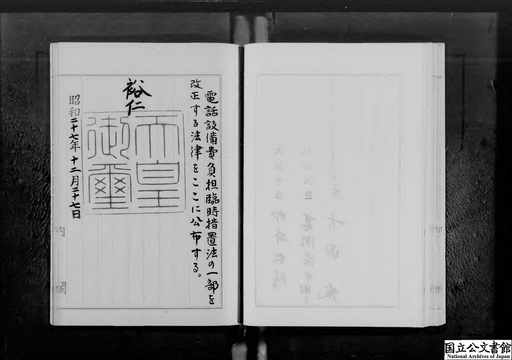 電話設備費負担臨時措置法の一部を
改正する法律をここに公布する。
裕仁
天皇
御璽
昭和二十七年十二月二十七日
内閣
国立公文書館
National Archives of Japan